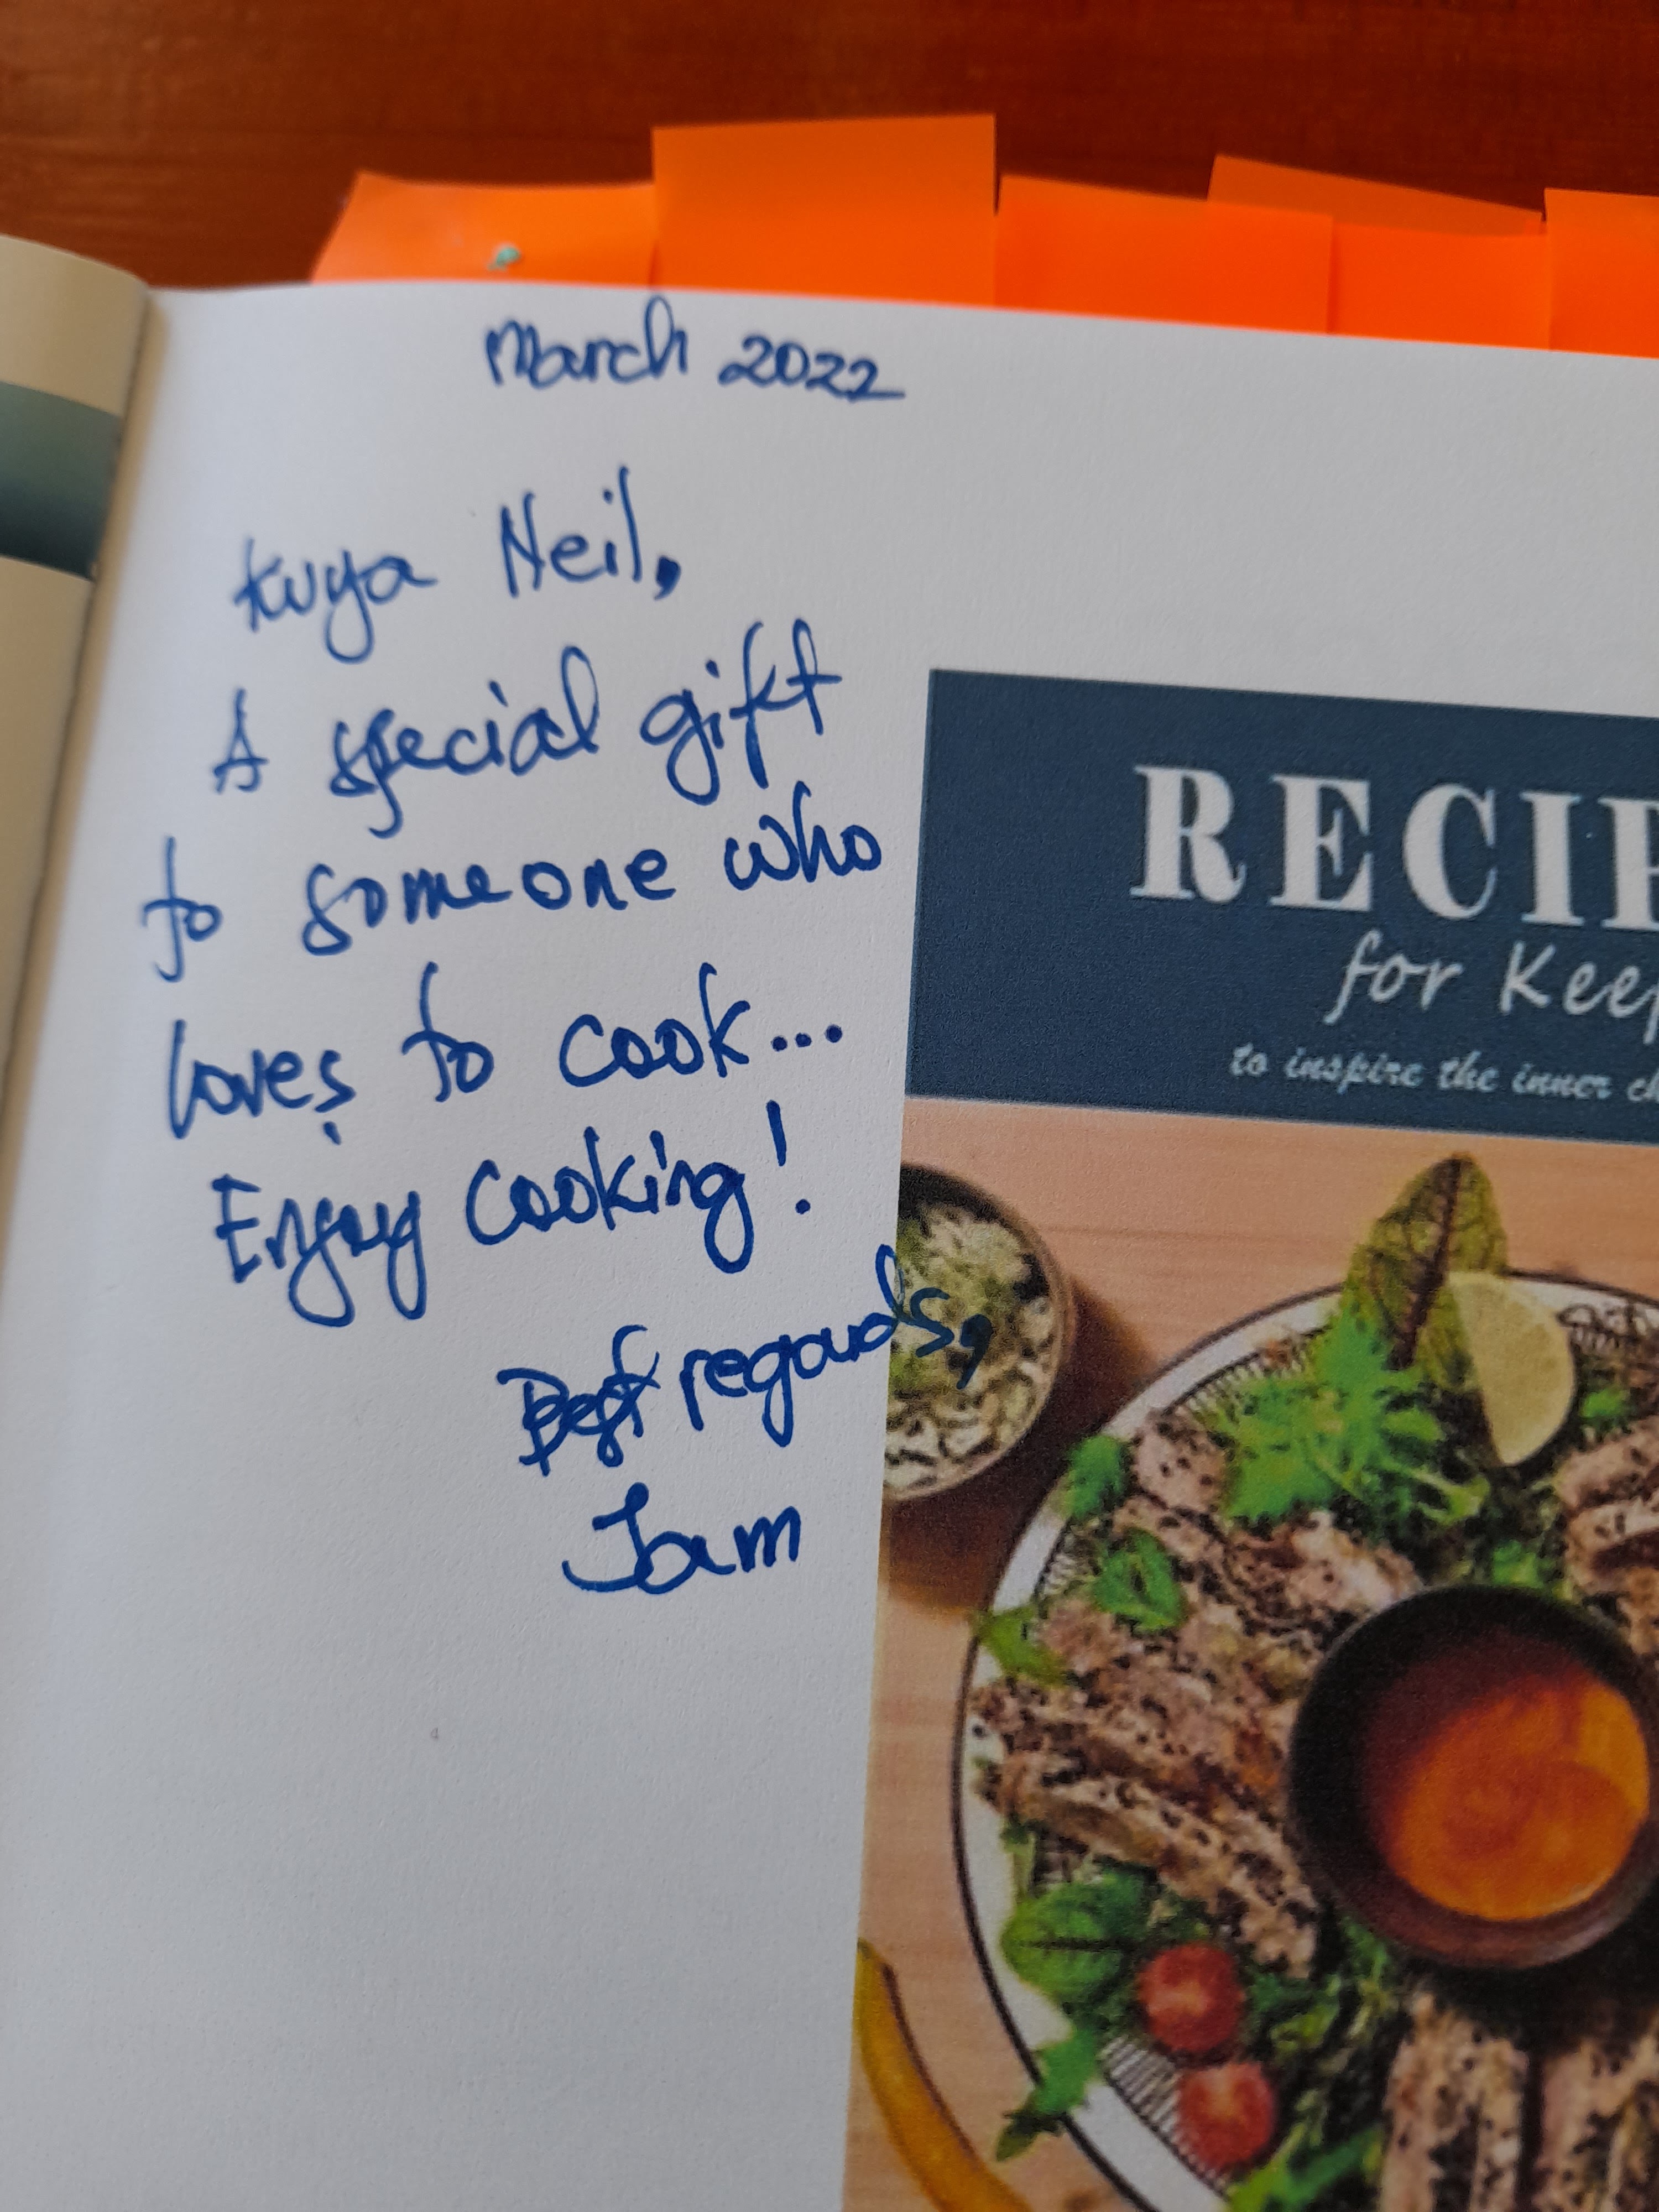 March 2022
Kuya Neil,
A special gift
to someone who
loves to cook...
Enjoy Cooking!
Best regards,
Jam
RECIP
for Keep
to inspire the inner ch